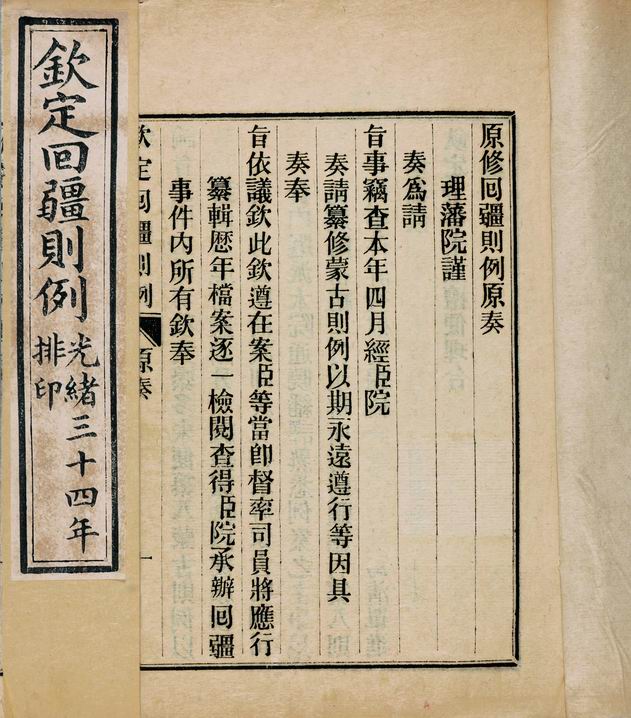 欽定回疆則例
光緒三十四年
排印
原修回疆則例原奏
理藩院謹
奏爲請
旨事竊查本年四月經臣院
奏請纂修蒙古則例以期永遠遵行等因具
奏奉
旨依議欽此欽遵在案臣等當即督率司員將應行
纂輯歷年檔案逐一檢閱查得臣院承辦回疆
事件內所有欽奉
欽定回疆則例 原奏 一